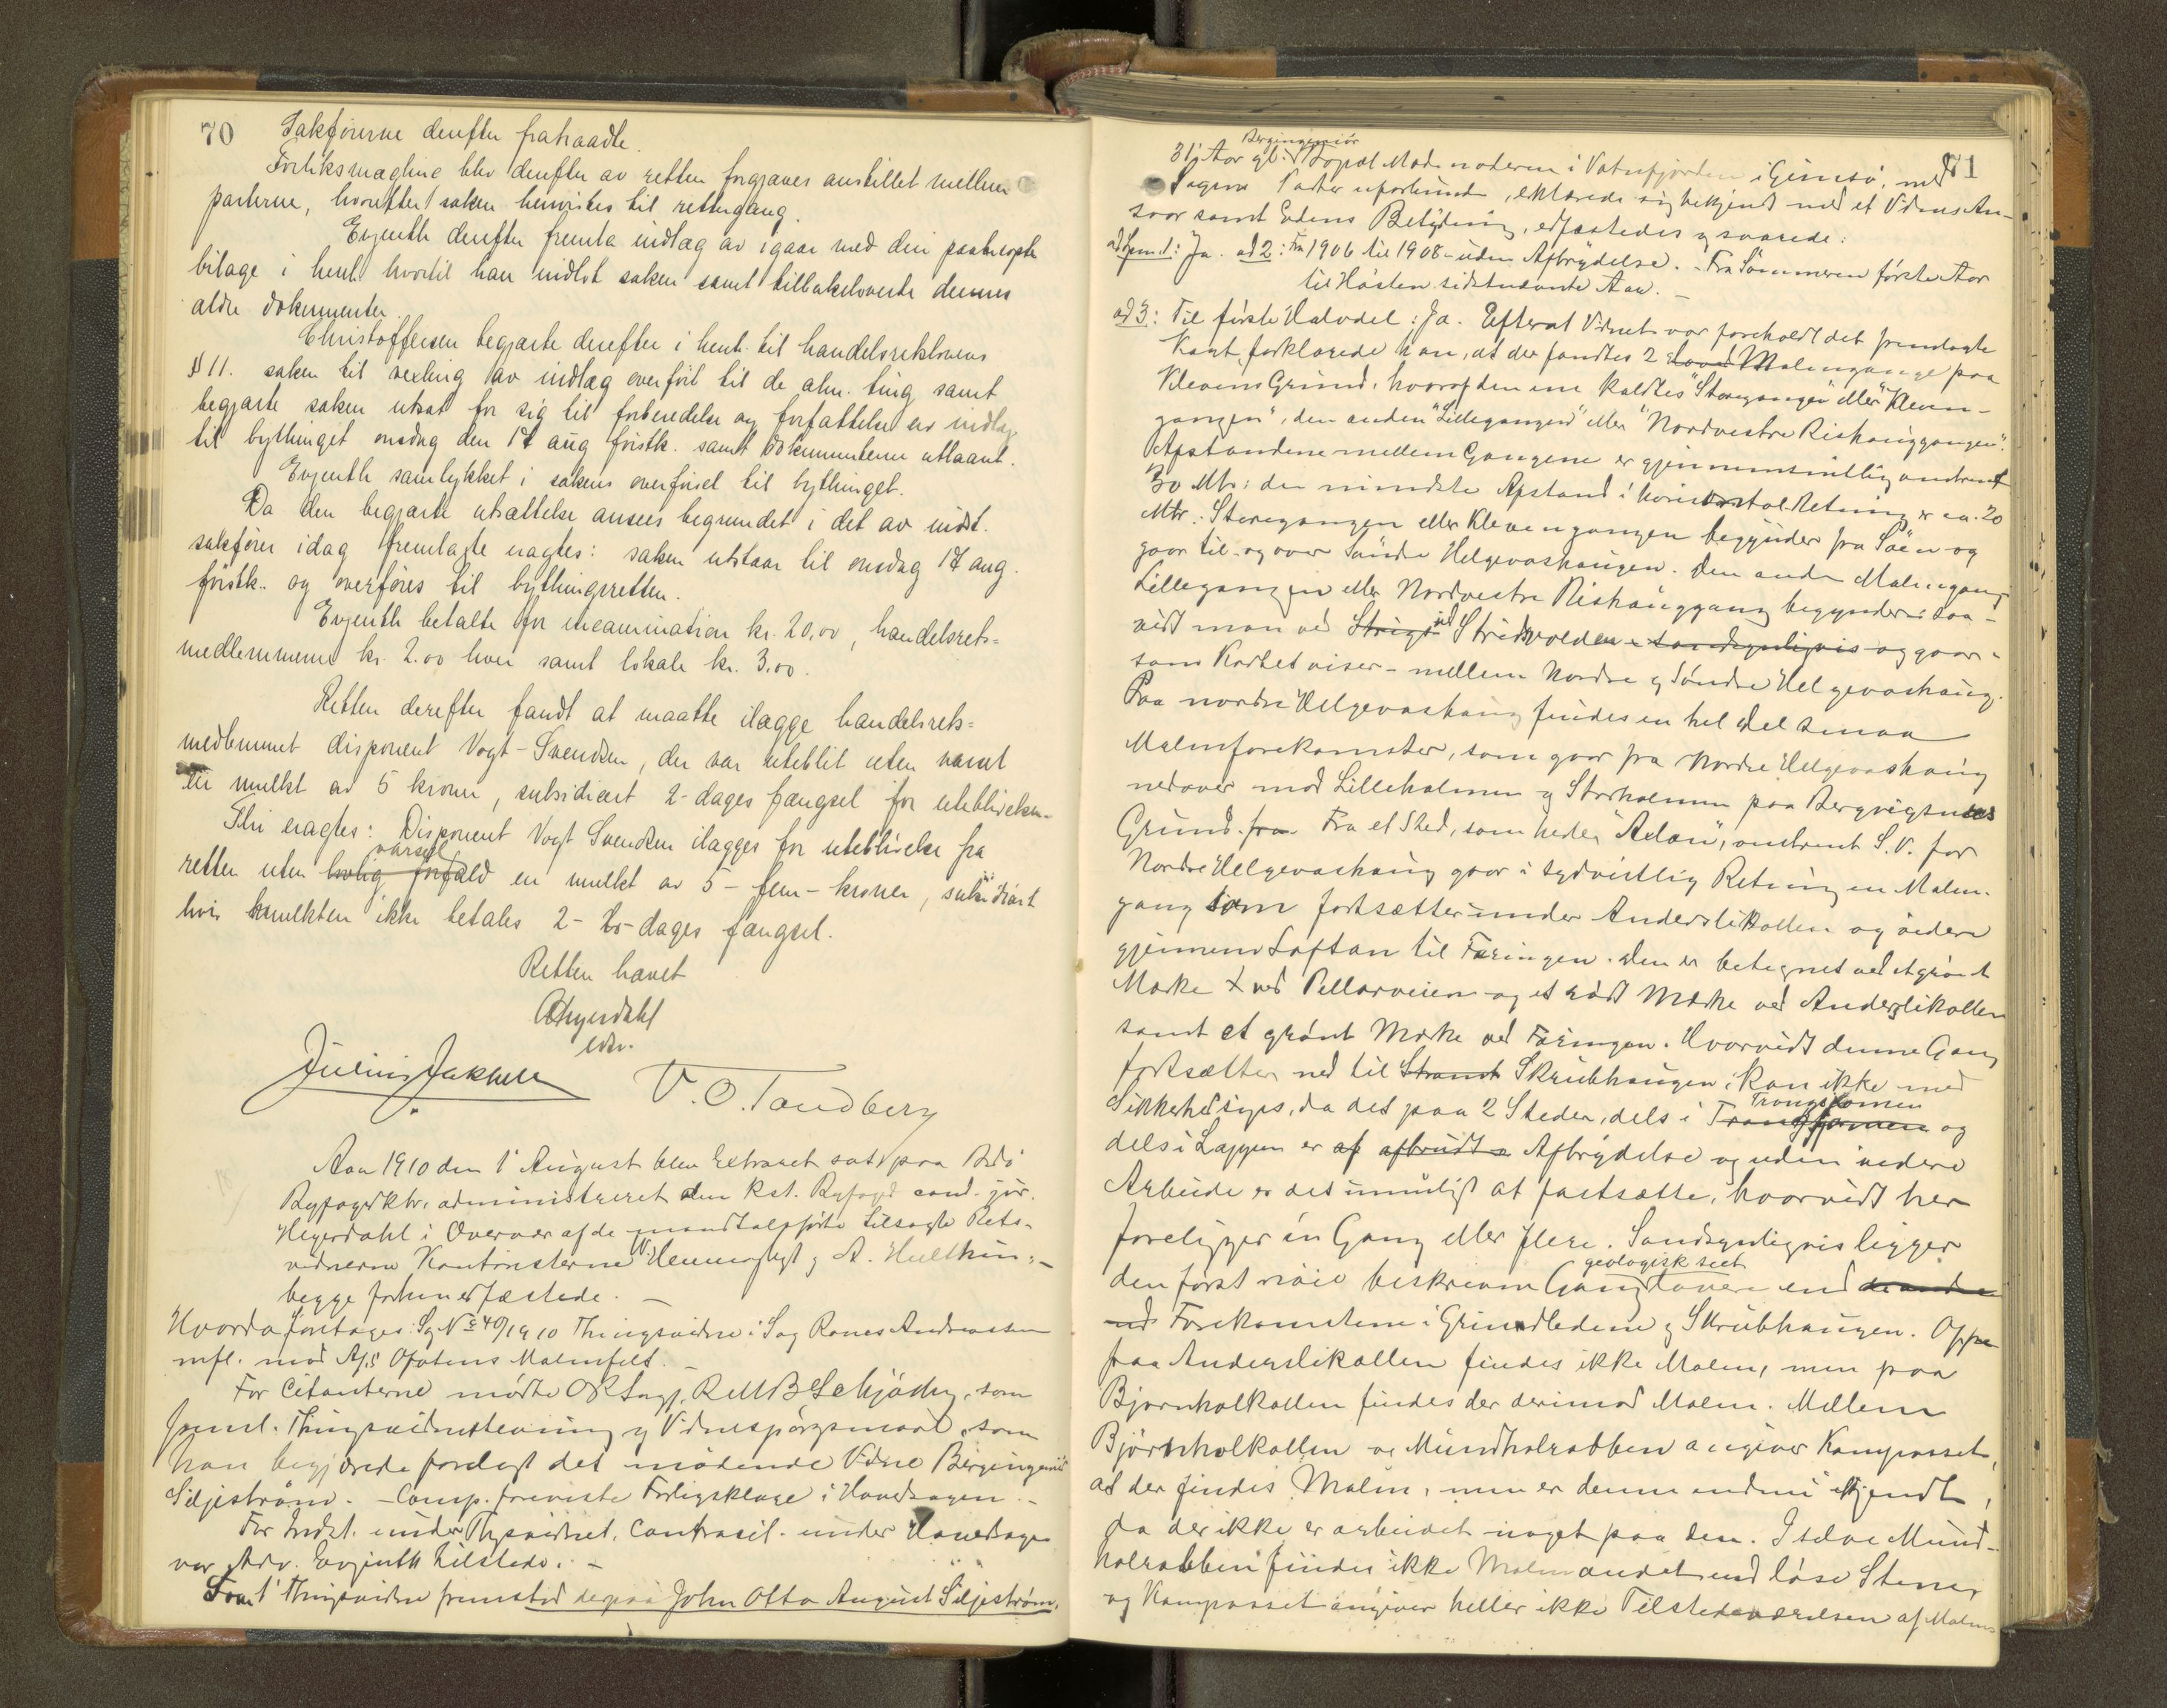 70
Sakförerne derefter fratraadte.
Forliksmægling blev derefter av retten forgjæves anstillet mellem
parterne, hvorefter saken henvistes til rettergang.
Evjenth derefter fremla indlæg av igaar med deri paaberopte
bilage i henh. hvortil han indlot saken samt tilbakeleverte dennes
ældre dokumenter.
Christoffersen begjærte derefter i henh. til handelsretslovens
§ 11. saken til vexling av indlæg overfört til de alm. ting samt
begjærte saken utsat for sig til forberedelse og forfattelse av indlæg
til bythinget onsdag den 17 aug förstk. samt dokumenterne utlaant.
Evjenth samtykket i sakens overförsel til bythinget.
Da den begjærte utsættelse ansees begrundet i det av indst.
sakförer idag fremlagte eragtes: saken utstaar til onsdag 17 aug.
förstk. og overföres til bythingsretten.
Evjenth betalte for incamination kr. 20,00, handelsrets=
medlemmerne kr. 2.00 hver samt lokale kr. 3.00.
Retten derefter fandt at maatte ilægge handelsrets=
medlemmet disponent Vogt-Svendsen, der var uteblit uten varsel
en mulkt av 5 kroner, subsidiært 2-dages fængsel for uteblivelsen.
Thi eragtes: Disponent Vogt Svendsen ilægges for uteblivelse fra
varsel
retten uten lovlig forfald en mulkt av 5 - fem - kroner, subsidiært
hvis mulkten ikke betales 2- to- dages fængsel.
Retten hævet
Hegerdahl
Julius Jakhelln V. O. Tandberg
Aar 1910 den 1' August blev Extraret sat paa Bodö
Byfogedktr, administreret den kst. Byfoged cand. jur.
Hegerdahl i Overvær af de mandtalsförte tilsagte Rets-
vidnerne Kontoristerne A. Hulthin, -
begge forhen edfæstede. -
Hvorda foretoges: Sg No 40/1910 Thingsvidne i Sag Rones Andreassen
mfl. mod A/S Ofotens Malmfelt. -
For Citanterne mödte ORSagf. R.M.B. Schjödty, som
freml. Thingsvidnestevning og Vidnespörgsmaal, som
han begjærede forelagt det mödende Vidne Bergingeniör
Siljeström. - Comp. foreviste Forligsklage i Hovedsagen. -
For Indst. under Thsvidnet, Contracit. under Hovedsagen
var Adv. Evjenth tilstede. -
Som 1' Thingsvidne fremstod derpaa John Otto August Siljeström,
71
Bergingeniör
31' Aar gl. Bopæl Mad noderen i Vatnfjorden i Gimsö, med
Sagens Parter uforbunden, erklærede sig bekjendt med et Vidnes An-
svar samt Edens Betydning, edfæstedes og svarede:
ad Spm 1: Ja. ad 2: Fra 1906 til 1908 - uden Afbrydelse. - Fra Sommeren förste Aar
til Hösten sidstnævnte Aar. -
ad 3: Til förste Halvdel: Ja. Efterat Vidnet var foreholdt det fremlagte
Kart, forklarede han, at der fandtes 2 Malmgange paa
Klevens Grund, hvoraf den ene kaldtes "Storegangen" eller "Kleven-
gangen", den anden "Lillegangen" eller "Nordvestre Rishauggangen".
Afstandene mellem Gangene er gjennemsnitlig omtrent
30 Mtr: den mindste Afstand i horisontal Retning er ca. 20
Mtr. Storegangen eller Klevengangen begynder fra Söen og
gaar til og over Söndre Helgevashaugen. Den anden Malmgang
Lillegangen eller Nordvestre Rishauggang begynder saa-
vidt man ved ved Stridsvolden - sandsynligvis og gaar -
som Kartet viser - mellem Nordre og Söndre Helgevashaug.
Paa nordre Helgevashaug findes en hel del smaa
Malmforekomster, som gaar fra Nordre Helgevashaug
nedover mod Lilleholmen og Storholmen paa Bergvigsnes
Grund. fra Fra et Sted, som heder "Aelan", omtrent S. V. for
Nordre Helgevashaug gaar i sydvestlig Retning en Malm-
gang som fortsætter under Anderslikollen og videre
gjennem Loftan til Færingen. Den er betegnet ved et grönt
Mærke X ved Pellarveien og et rödt Mærke ved Anderslikollen
samt et grönt Mærke ved Færingen. Hvorvidt denne Gang
fortsætter ned til Skrubhaugen, kan ikke med
Sikkerhed siges, da det paa 2 Steder, dels i og
dels i Lappen er af afbrudt s Afbrydelse og uden videre
Arbeide er det umuligt at fastsætte, hvorvidt her
foreligger én Gang eller flere. Sandsynligvis ligger
geologisk seet
den först nævnte beskrevne Gang lavere end de andre
end Forekomstene i Grindledene og Skrubhaugen. Oppe
paa Anderslikollen findes ikke Malm, men paa
Bjornholkollen findes der derimod Malm. Mellem
Björnholkollen og Mundholrabben angiver Kompasset,
at der findes Malm, men er denne endnu ukjendt,
da der ikke er arbeidet noget paa den. I selve Mund-
holrabben findes ikke Malm andet end löse Stene,
og Kompasset angiver heller ikke Tilstedeværelsen af Malm